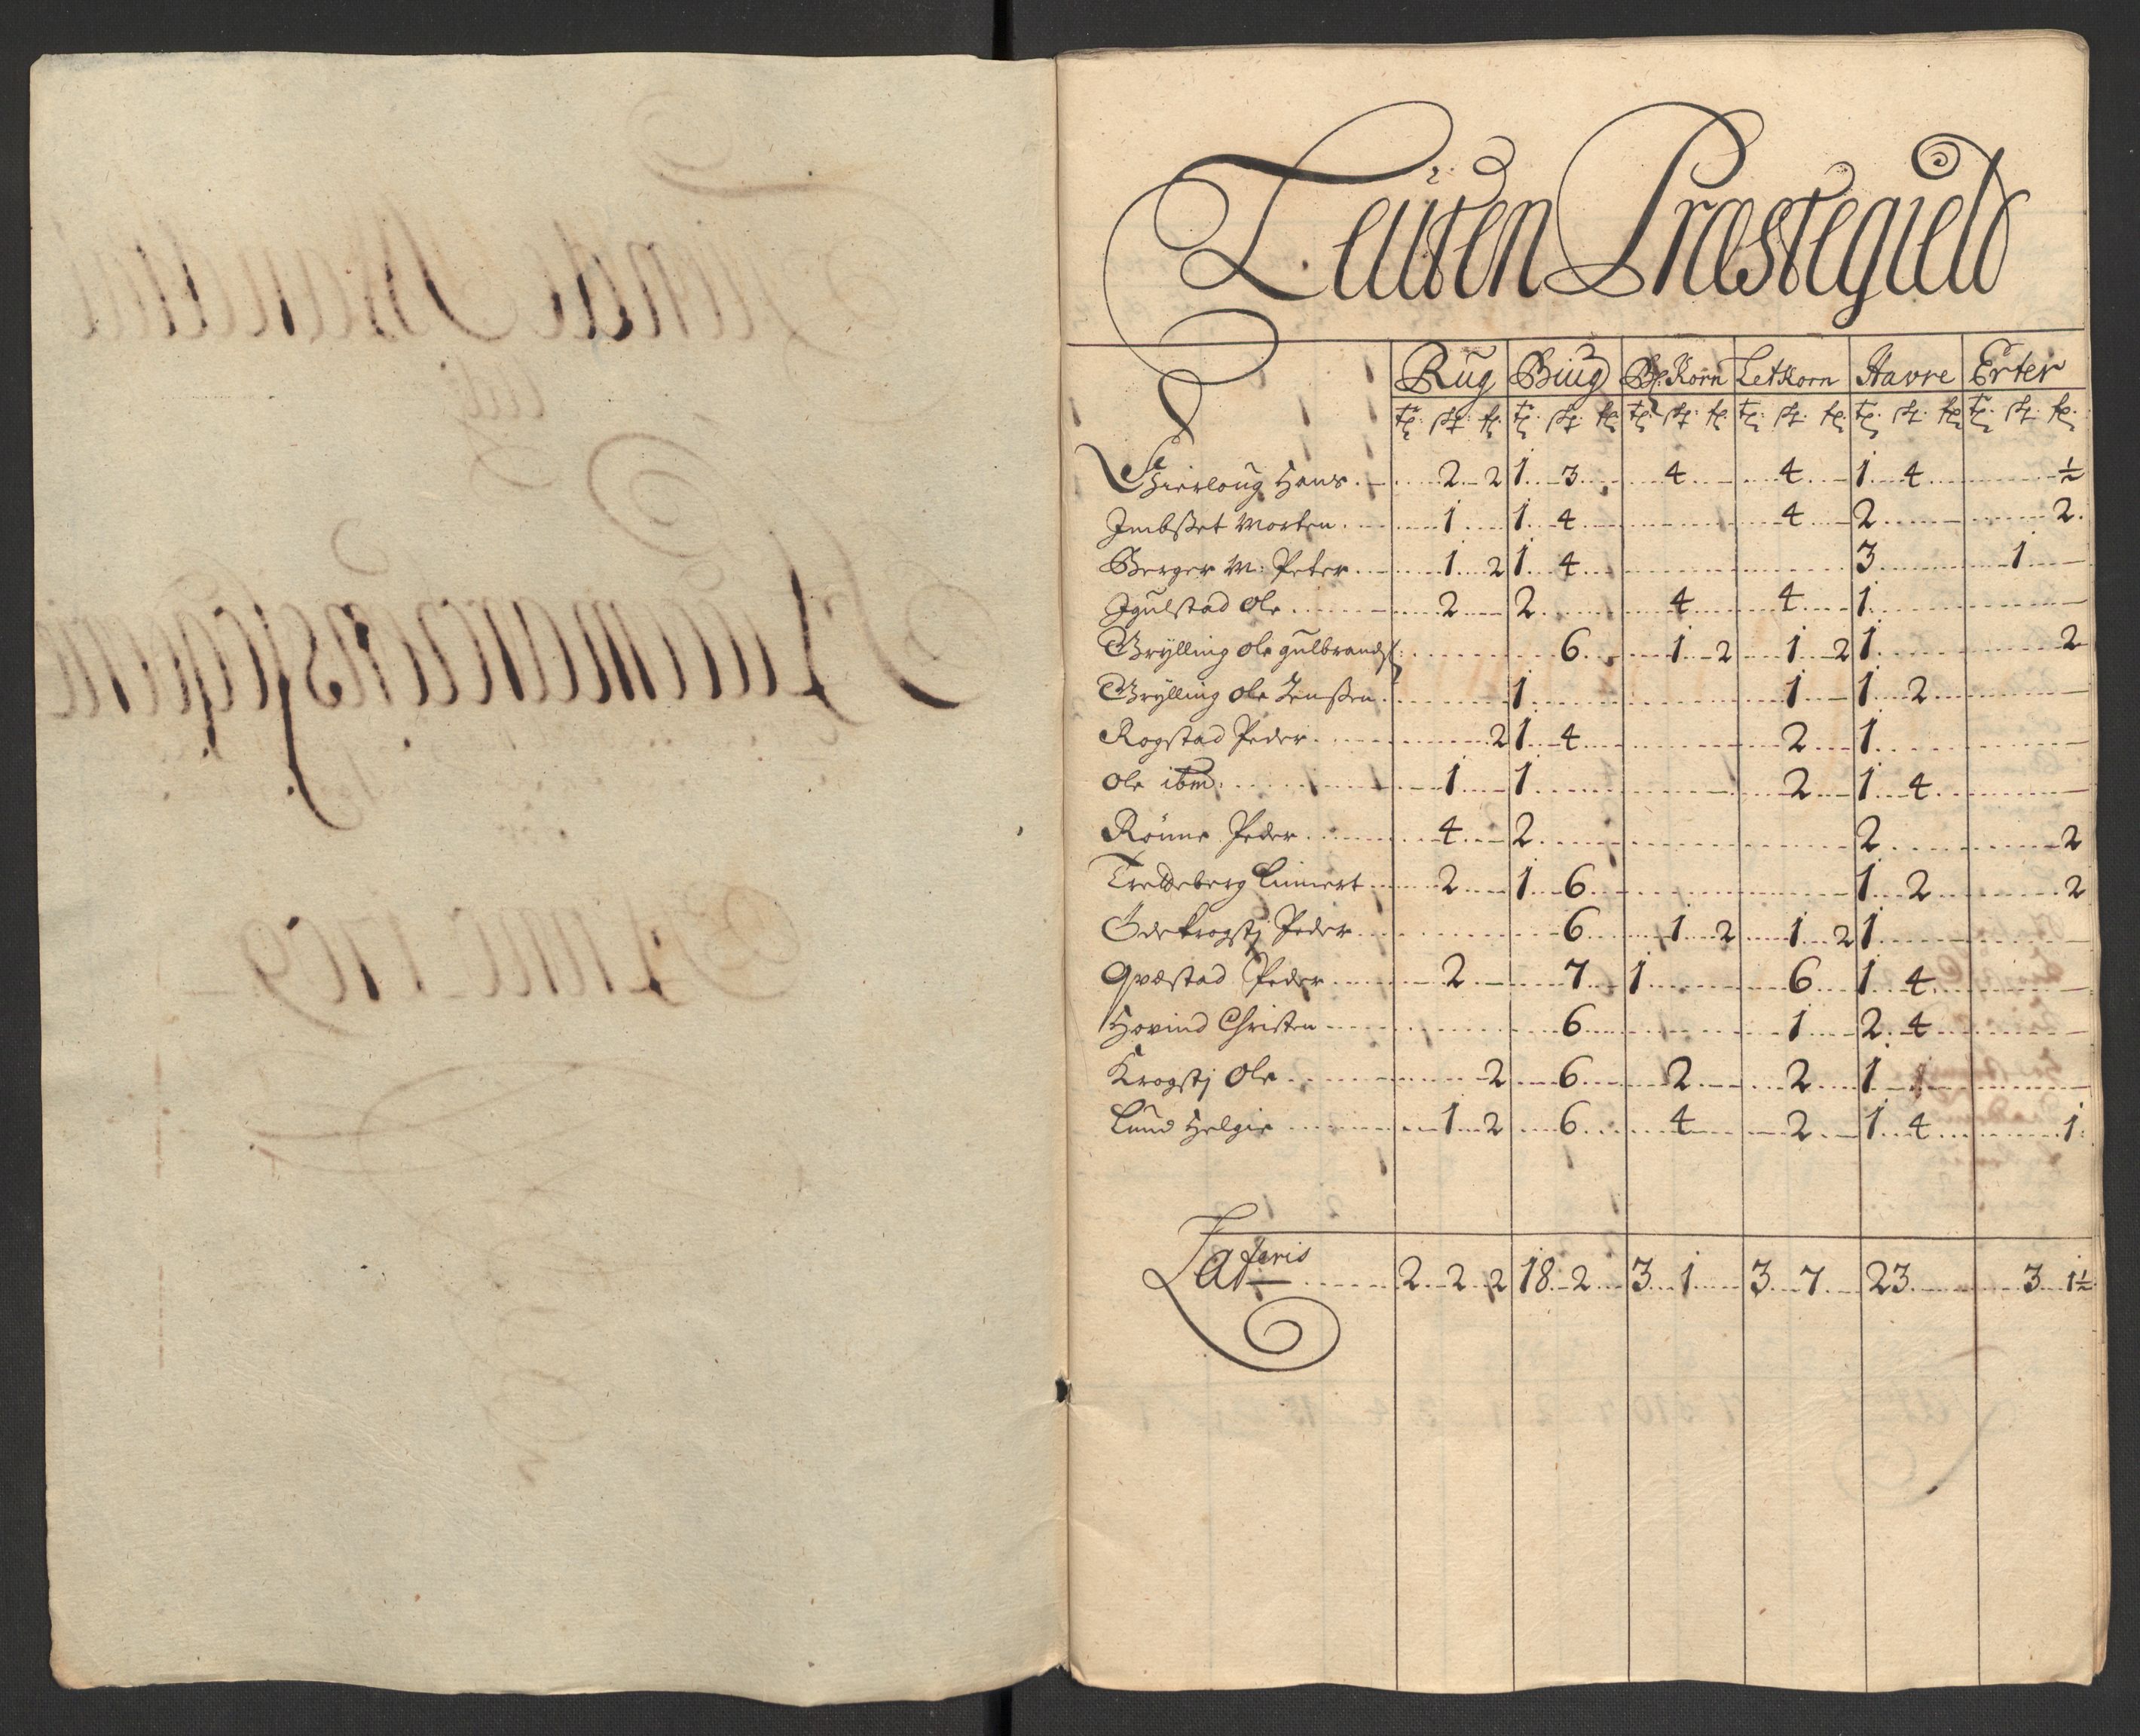 Leuten Præstegield
Rug Biug Bl.Korn Letkorn Havre Erter
tr: sk: fr: tr: sk: fr: tr: sk: fr: tr: sk: fr: tr: sk: fr: tr: sk: fr:
Hans 2 2 1 3 4 4 1 4 ½
Imbset Morten 1 1 4 4 2 2
Berger M: Peter 1 2 1 4 3 1
Igulstad Ole 2 2 4 4 1
Grylling Ole gulbrands: 6 1 2 1 2 1 2
Grylling Ole Jensen 1 1 1 2
Rogstad Peder 2 1 4 2 1
Ole ibm 1 1 2 1 4
Rønne Peder 4 2 2 2
Treldeberg 2 1 6 1 2 2
Ødekrogstj Peder 6 1 2 1 2 1
Qvæstad Peder 2 7 1 6 1 4
Hovind Christen 6 1 2 4
Krogstj Ole 2 6 2 2 1
Lund Helgie 1 2 6 4 2 1 4 1
Lateris 2 2 2 18 2 3 1 3 7 23 3 1½